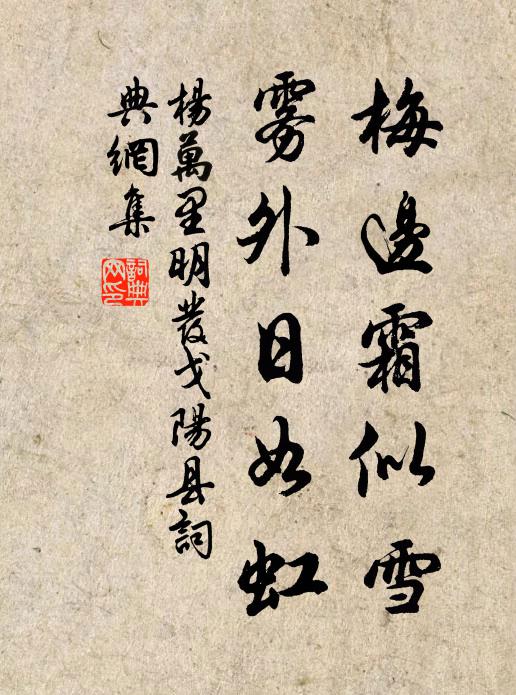 梅邊霜似雪
雾外日如虹
楊萬里明發弋陽县詞
典網集
詞典
网印